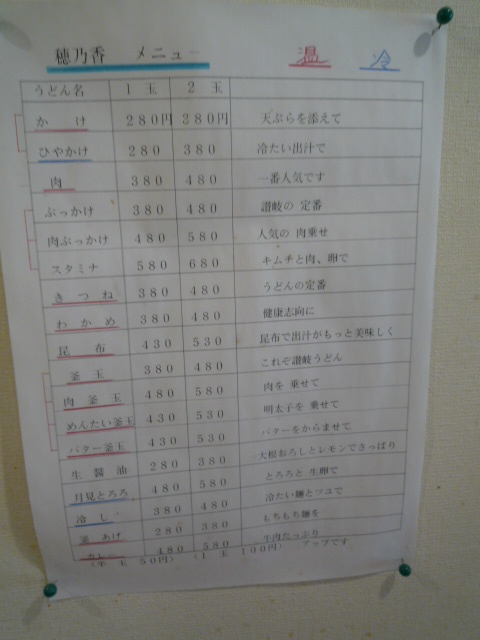 穂乃香 メニュー 温 冷
うどん名 1玉 2玉
かけ 280円 280円 天ぷらを添えて
ひやかけ 280 380 冷たい出汁で
肉 380 480 一番人気です
ぶっかけ 380 480 讃岐の 定番
肉ぶっかけ 480 580 人気の 肉乗せ
スタミナ 580 680 キムチと肉、卵で
きつね 380 480 うどんの定番
わかめ 380 480 健康志向に
昆布 430 530 昆布で出汁がもっと美味しく
釜玉 380 480 これぞ讃岐うどん
肉釜玉 480 580 肉を 乗せて
めんたい釜玉 430 530 明太子を 乗せて
バター釜玉 430 530 バターをからませて
生醤油 280 380 大根おろしとレモンでさっぱり
月見とろろ 480 580 とろろと 生卵で
冷し 380 480 冷たい麺とツユで
釜あげ 280 380 もちもち麺を
カレー 480 580 牛肉たっぷり
(半玉 50円) (1玉 100円) アップです